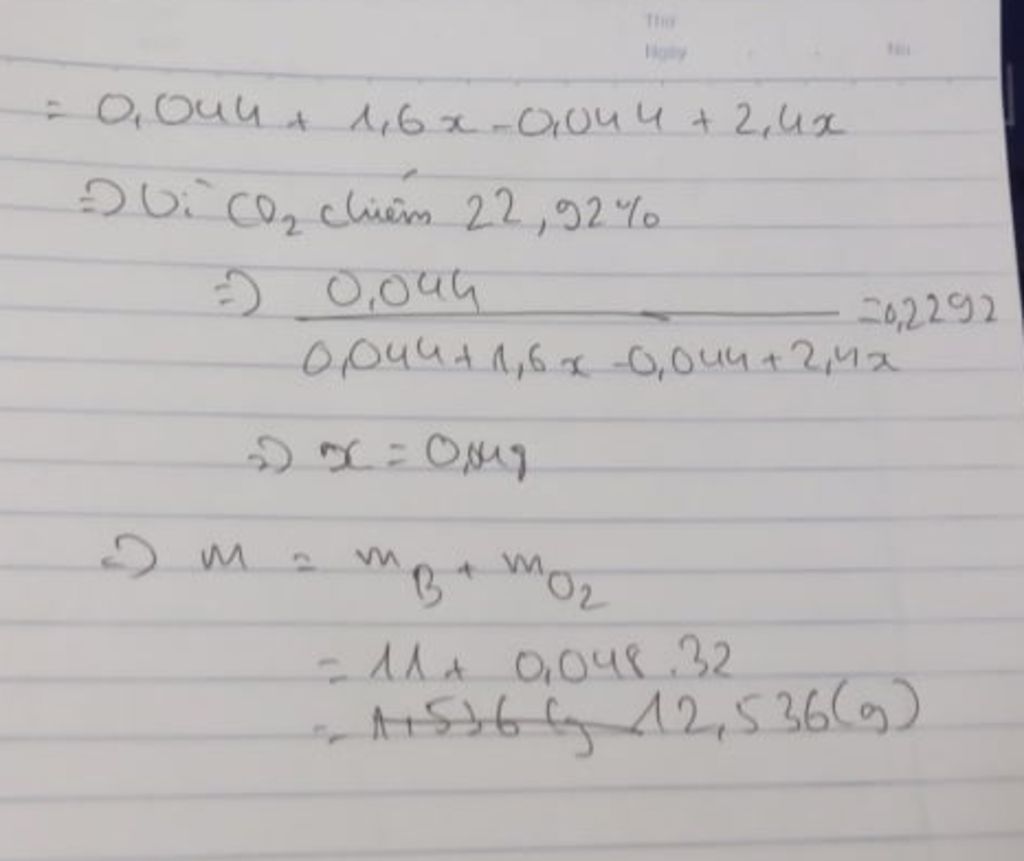 Thứ
Ngày No.
= 0,044 + 1,6x - 0,044 + 2,4x
=> Vì CO₂ chiếm 22,92%
=> 0,044
=0,2292
0,044 + 1,6x - 0,044 + 2,4x
=> x = 0,048
=> m = m_B + m_O₂
= 11 + 0,048.32
= 12,536(g)